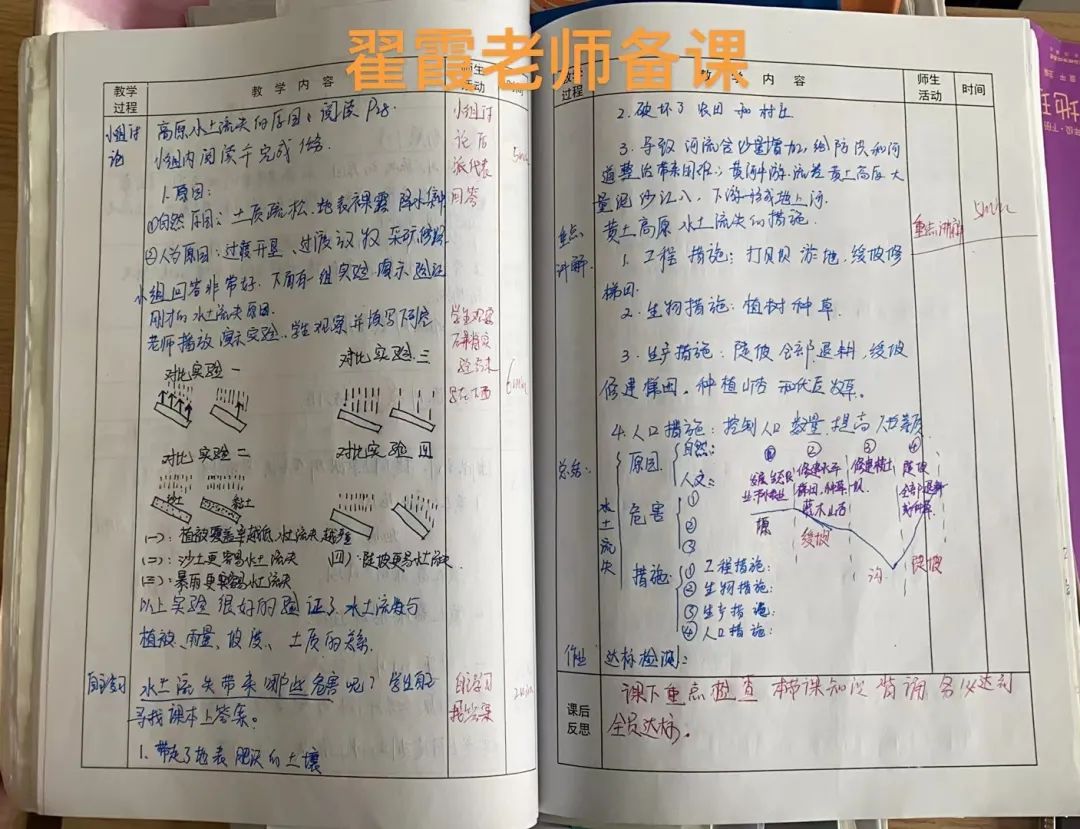 翟霞老师备课
教学过程
教学内容
师生活动
时间
小组讨论
高原水土流失的原因：阅读P28.
小组内阅读并完成任务.
1.原因：
①自然原因：土质疏松、地表裸露 降水集中
②人为原因：过度开垦、过度放牧 采矿修路
小组回答非常好.下面有一组实验演示验证
刚才的水土流失原因.
老师播放演示实验.学生观察并填写下列空
小组讨
论后
派代表
回答
5min
对比实验一
对比实验三
对比实验二
对比实验四
沙土
黏土
学生观察
6min
(一)：植被覆盖率越低,水土流失越强
(二)：沙土更容易水土流失
(四)：陡坡更易水土流失.
(三)：暴雨更容易水土流失
以上实验很好的验证了水土流失与
植被、雨量、坡度、土质的关系.
自主学习
水土流失带来哪些危害呢？学生自主
寻找课本上答案。
1.带走了地表肥沃的土壤
自主学习
找答案
2min
教学过程
教学内容
师生活动
时间
2.破坏了农田和村庄
3.导致河流含沙量增加,给防洪和河
道整治带来困难；黄河中游流茬黄土高原大
量泥沙汇入，下游形成地上河.
重点讲解
黄土高原水土流失的措施.
重点讲解
5min
1.工程措施：打坝淤地，缓坡修
梯田.
2.生物措施：植树种草.
3.生产措施：陡坡全部退耕,缓坡
修建梯田,种植
4.人口措施：控制人口数量,提高人口素质
总结：
水土流失
原因
自然：
人文：
危害
①
②
③
措施
①工程措施：
②生物措施：
③生产措施：
④人口措施：
①
②
③
④
塬
缓坡
沟
陡坡
作业
达标检测：
课后反思
课下重点检查本节课知识背诵务必达到
全员达标。
地理